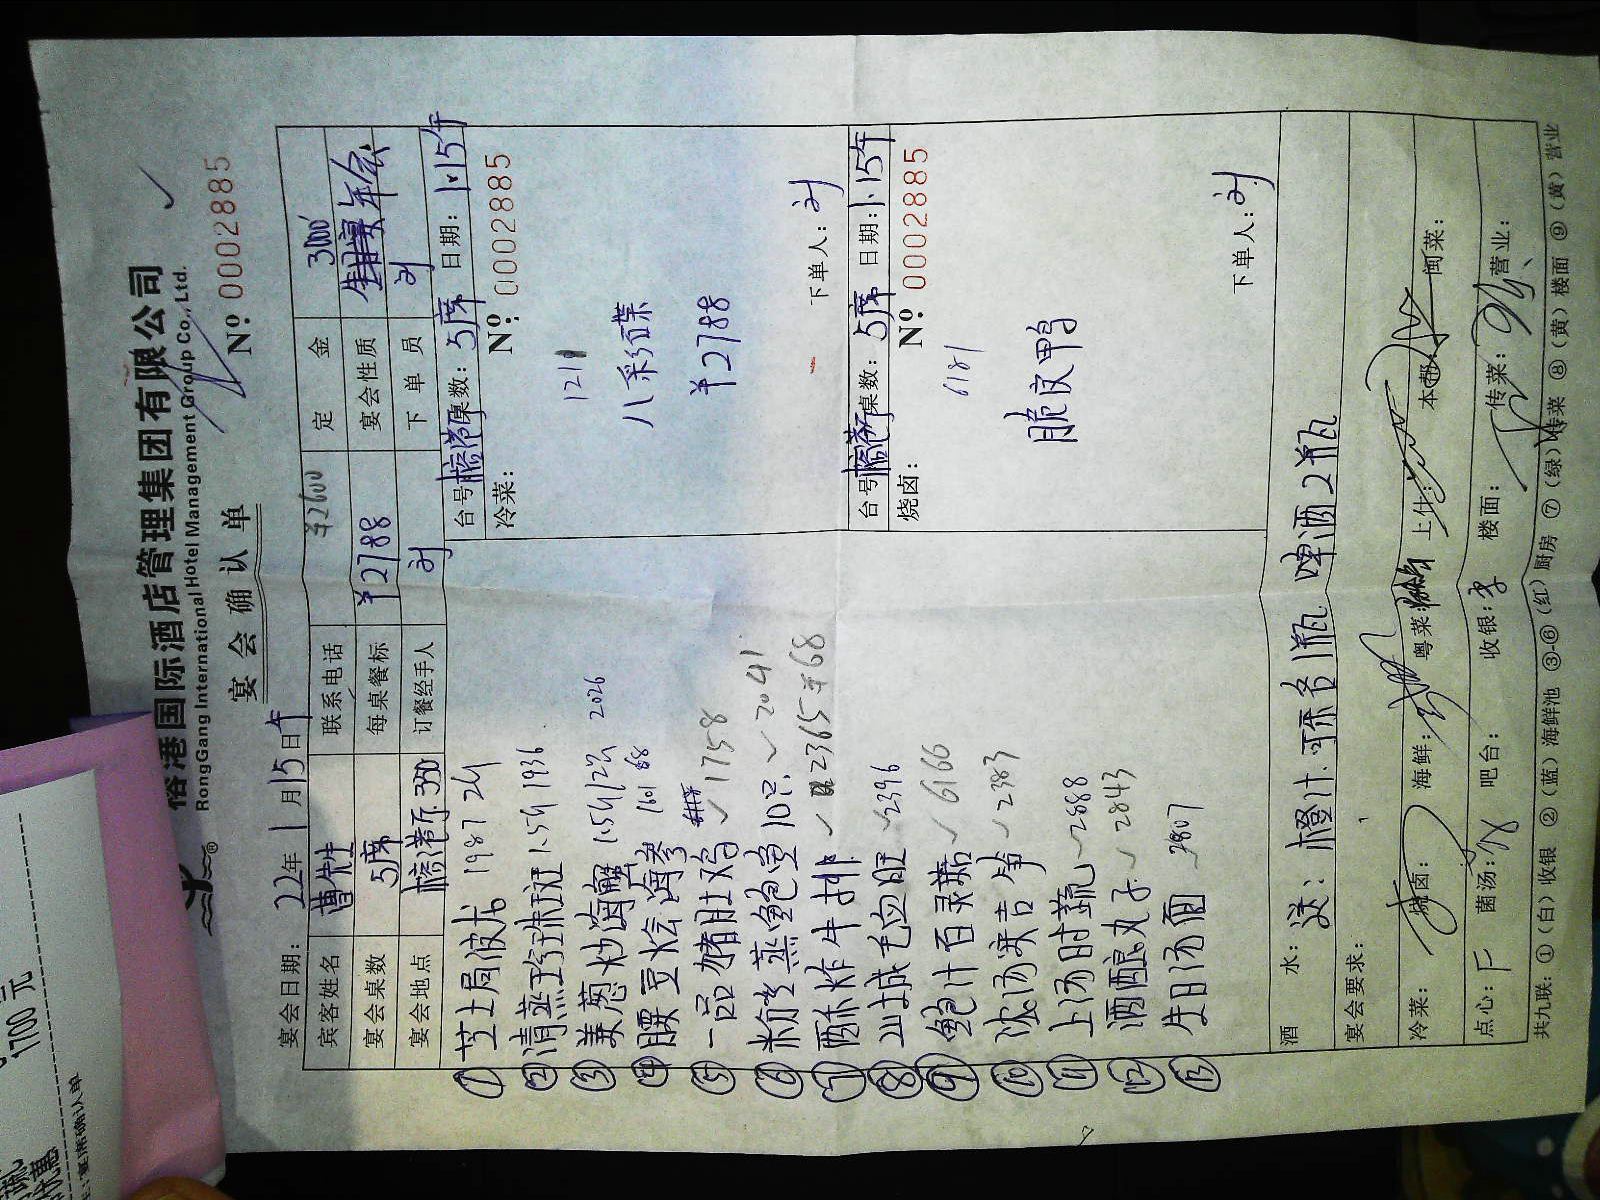 榕港国际酒店管理集团有限公司
RongGang International Hotel Management Group Co., Ltd.
宴会确认单
№ 0002885
宴会日期: 22年 1月15日午 ¥2600
宾客姓名 曹先生 联系电话 定金 3000
宴会桌数 5席 每桌餐标 ¥2788 宴会性质 年会
宴会地点 榕港厅 350 订餐经手人 刘 下单员 刘
① 芝士局波龙 1987 2斤
② 清蒸珍珠斑 1.5斤 1936
③ 姜葱炒海蟹 1.5斤/2只 2026
④ 腰豆烩海参 1601 68
⑤ 一品猪肚鸡 ✓1758
⑥ 粉丝蒸鲍鱼10只 ✓2041
⑦ 酥炸牛排 ✓ 2365 ¥68
⑧ 山城毛血旺 ✓2396
⑨ 鲍汁百灵菇 ✓6166
⑩ 浓汤芙吉笋 ✓2383
⑪ 上汤时蔬 ✓2888
⑫ 酒酿丸子 ✓2843
⑬ 生日汤面 ✓2807
台号 榕港厅 桌数: 5席 日期: 1.15午
冷菜: №: 0002885
1211
八彩碟
¥2788
下单人: 刘
台号 榕港厅 桌数: 5席 日期: 1.15午
烧卤: №: 0002885
6181
脆皮鸭
下单人: 刘
酒水: 送: 橙汁.可乐各1瓶 啤酒2瓶
宴会要求:
冷菜: 烧卤: 海鲜: 粤菜: 上什: 本帮: 闽菜:
点心: 菌汤: 吧台: 收银: 李 楼面: 传菜: 营业:
共九联: ①(白)收银 ②(蓝)海鲜池 ③-⑥(红)厨房 ⑦(绿)传菜 ⑧(黄)楼面 ⑨(黄)营业
1700元
宴席确认单